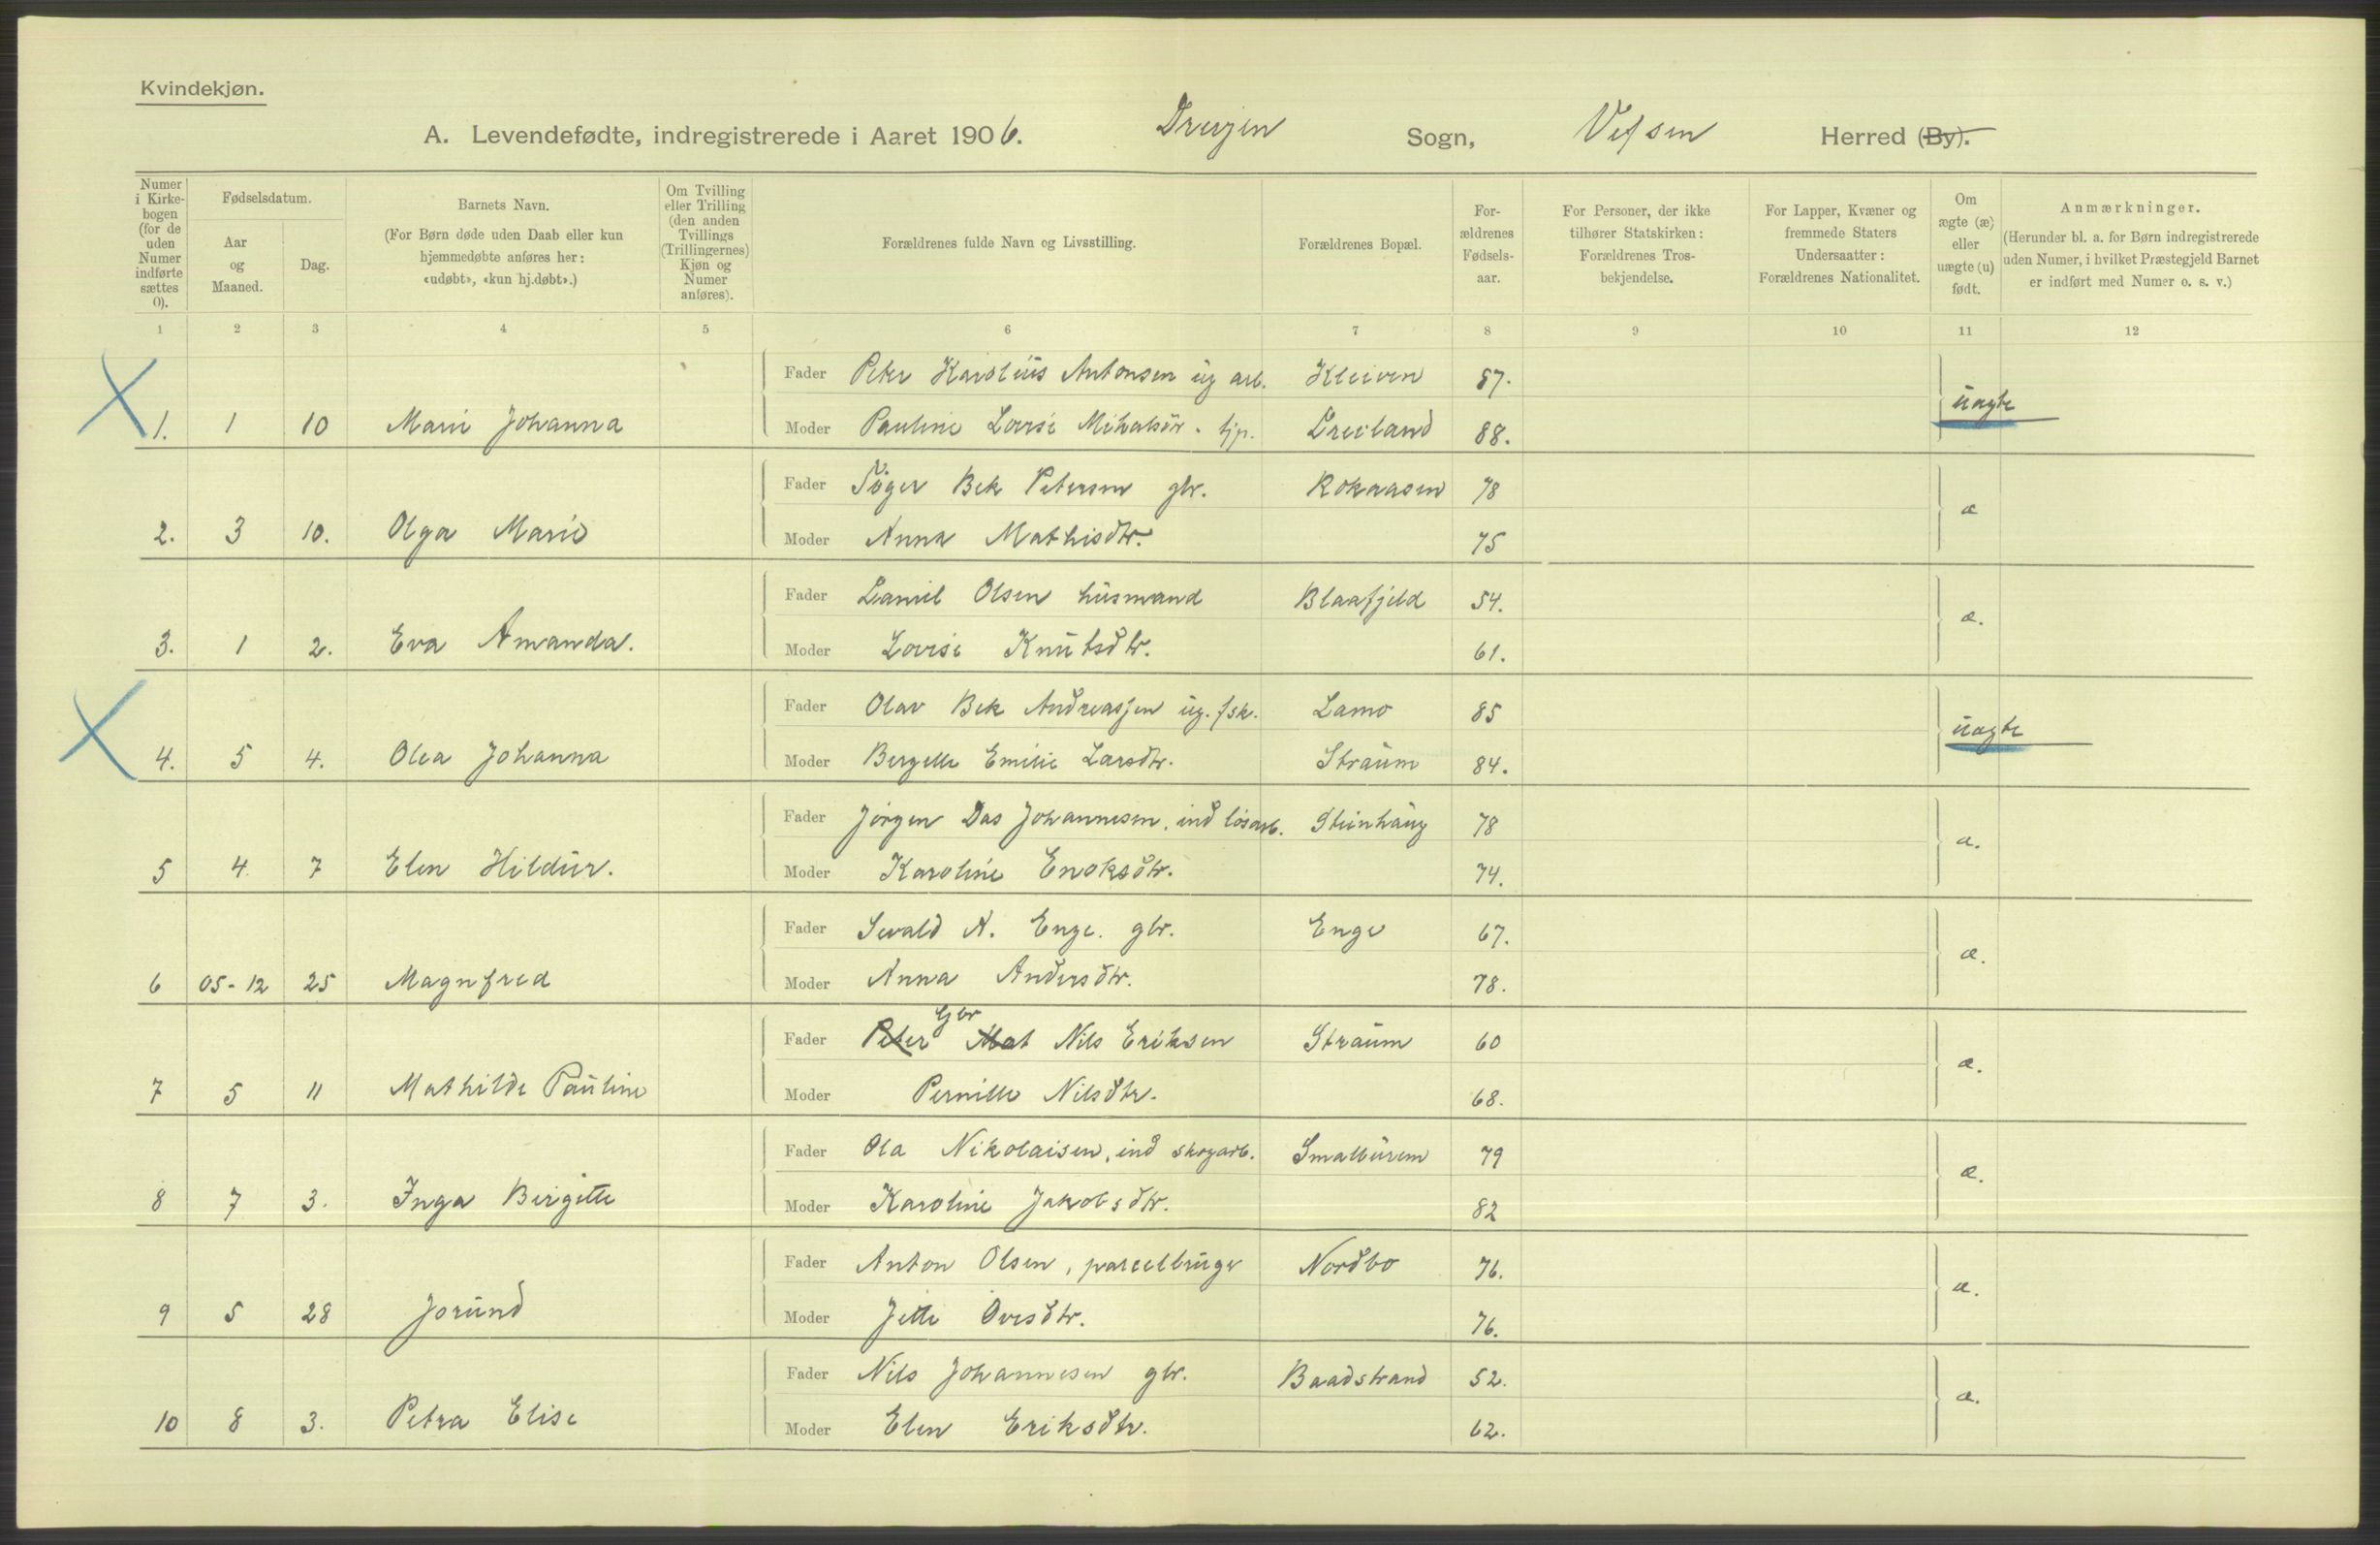 Kvindekjøn.
A. Levendefødte, indregistrerede i Aaret 1906. Drevjen Sogn, Vefsen Herred (By).
Numer i Kirke- bogen (for de uden Numer indførte sættes 0).
Fødselsdatum.
Aar og Maaned.
Dag.
Barnets Navn.
(For Børn døde uden Daab eller kun hjemmedøbte anføres her: «udøbt», «kun hj.døbt».)
Om Tvilling eller Trilling (den anden Tvillings (Trillingernes) Kjøn og Numer anføres).
Forældrenes fulde Navn og Livsstilling.
Forældrenes Bopæl.
For- ældrenes Fødsels- aar.
For Personer, der ikke tilhører Statskirken: Forældrenes Tros- bekjendelse.
For Lapper, Kvæner og fremmede Staters Undersaatter: Forældrenes Nationalitet.
Om ægte (æ) eller uægte (u) født.
Anmærkninger.
(Herunder bl. a. for Børn indregistrerede uden Numer, i hvilket Præstegjeld Barnet er indført med Numer o. s. v.)
1 2 3 4 5 6 7 8 9 10 11 12
Fader Peter Karolius Antonsen ug arb. Kleiven 87.
1. 1 10 Marie Johanna Moder Pauline Lovise Mihalsdtr. tjp. Dreiland 88. uægte
Fader Bek Petersen gbr. Rokaasen 78
2. 3 10. Olga Marie Moder Anna Mathisdtr. 75 æ
Fader Daniel Olsen husmand Blaafjeld 54.
3. 1 2. Eva Amanda. Moder Lovise Knutsdtr. 61. æ.
Fader Olav Bek Andreassen ug. fsk. Lamo 85
4. 5 4. Olea Johanna Moder Bergette Emilie Larsdtr. Straum 84. uægte
Fader Jørgen Das Johannesen, ind løsarb. Steinhaug 78
5 4 7 Elen Hildur. Moder Karoline Enoksdtr. 74. æ.
Fader Sivald A. Enge. gbr. Enge 67.
6 05-12 25 Magnfred Moder Anna Andersdtr. 78. æ.
Fader Peter Gbr Mat Nils Eriksen Straum 60
7 5 11 Mathilde Pauline Moder Pernille Nilsdtr. 68. æ.
Fader Ola Nikolaisen, ind skogarb. 79
8 7 3. Inga Birgitte Moder Karoline Jakobsdtr. 82 æ.
Fader Anton Olsen, parcelbruger Nordbo 76.
9 5 28 Jorund Moder Jette Ovesdtr. 76. æ.
Fader Nils Johannesen gbr. Baadstrand 52.
10 8 3. Petra Elise Moder Elen Eriksdtr. 62. æ.